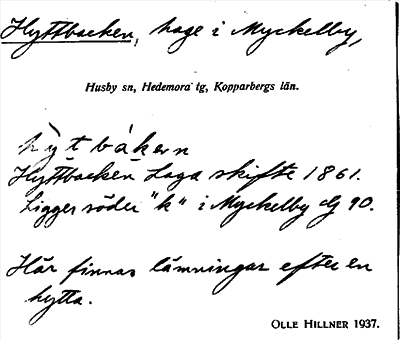 Hyttbacken, hage i Myckelby,
Husby sn, Hedemora tg, Kopparbergs län.
hỳtbákern
Hyttbacken Laga skifte 1861.
Ligger söder "k" i Myckelby dG 90.
Här finnas lämningar efter en
hytta.
OLLE HILLNER 1937.